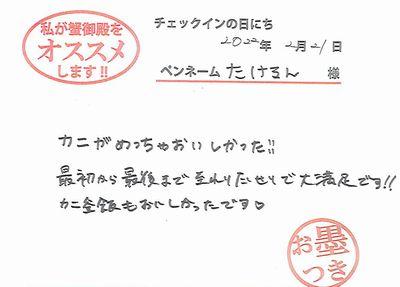 私が蟹御殿を
オススメ
します!!
チェックインの日にち
2022年 2月21日
ペンネーム たけるん 様
カニがめっちゃおいしかった!!
最初から最後まで至れりだせりで大満足です!!
カニ釜飯もおいしかったです♡
お墨
つき